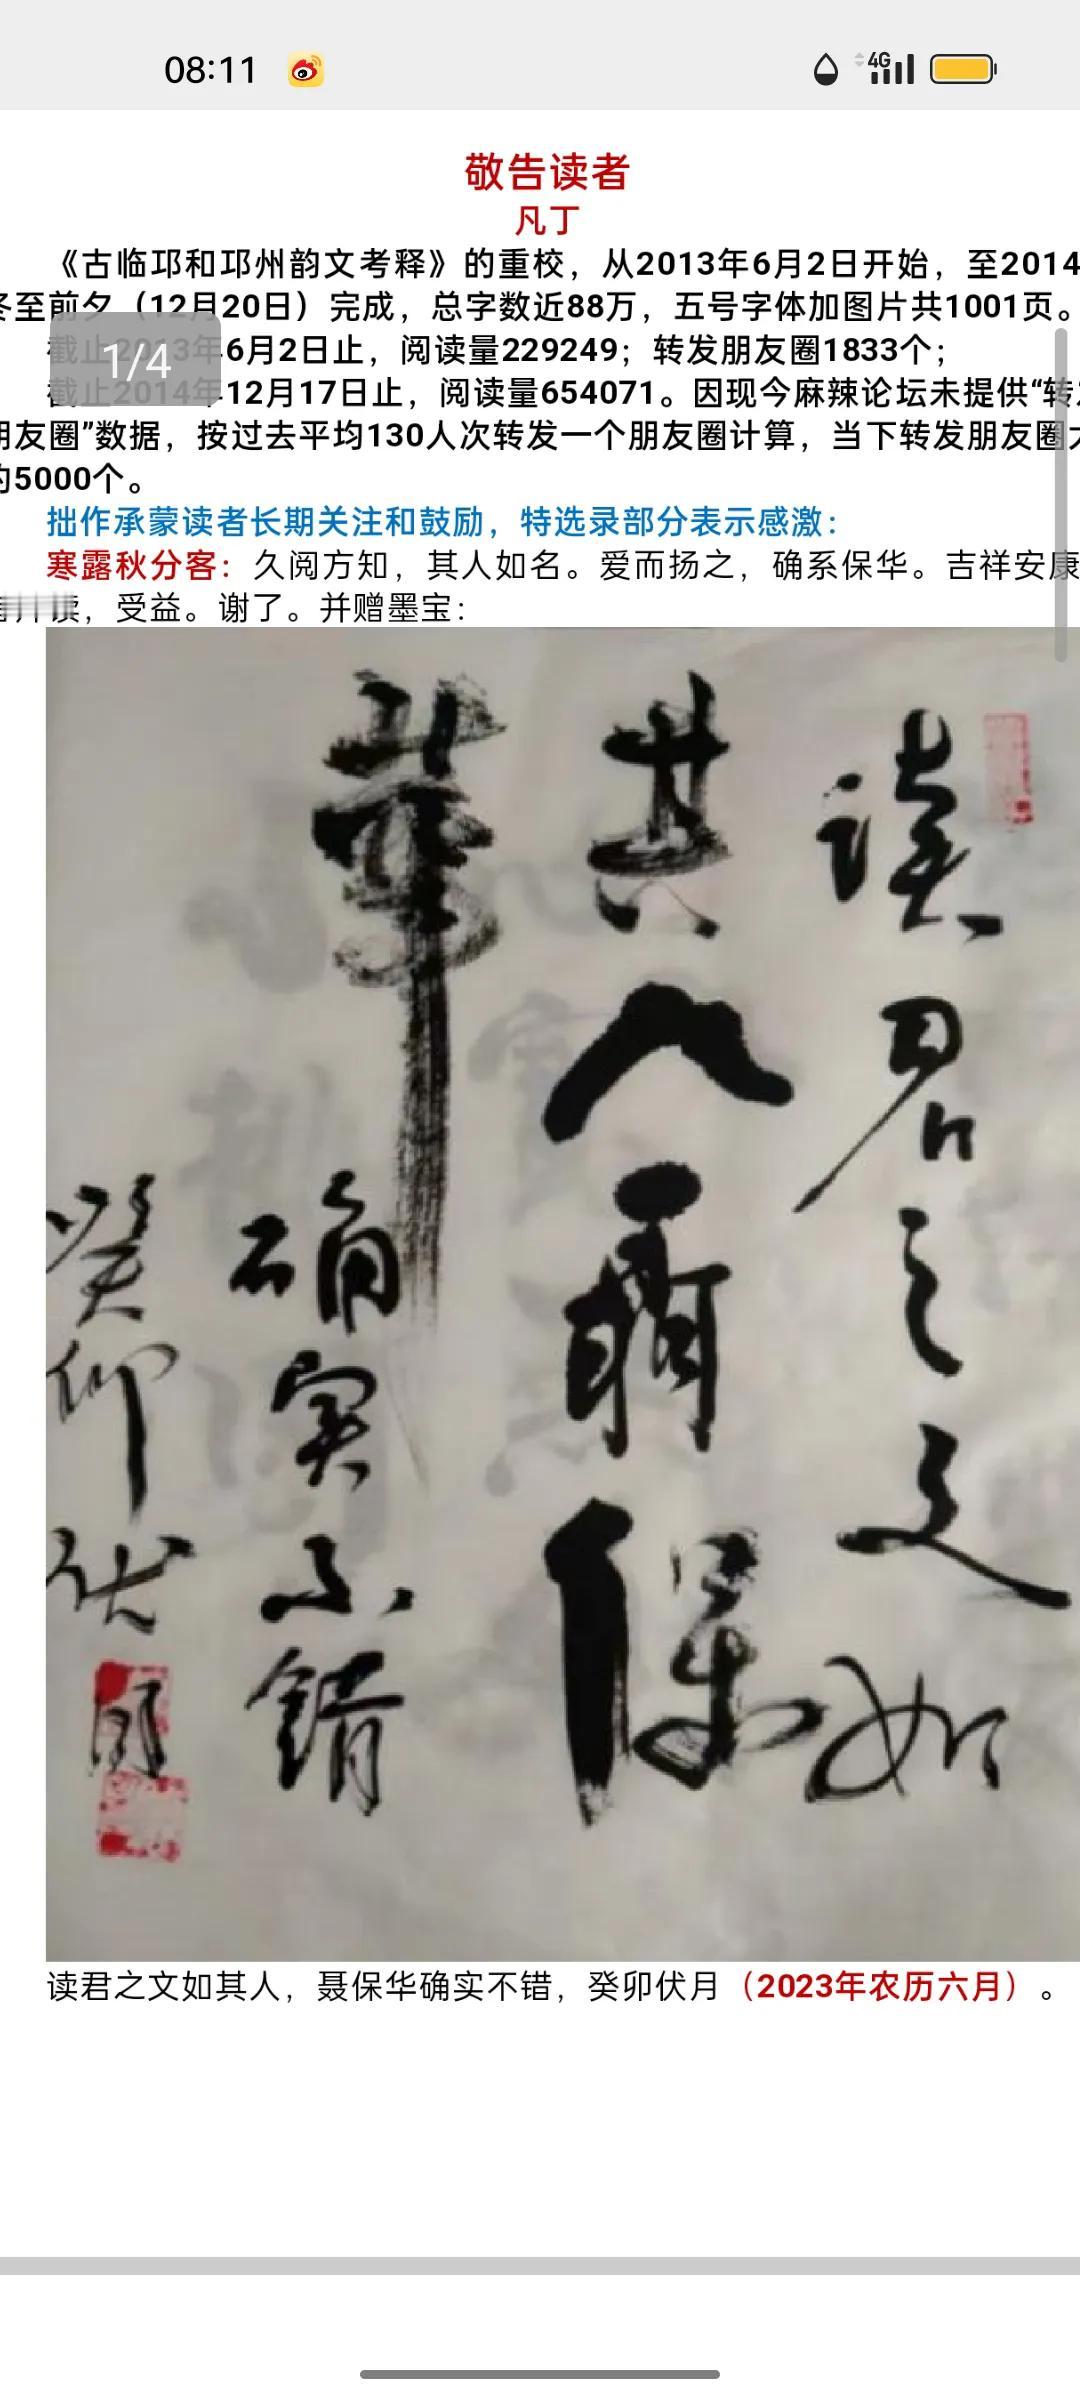 08:11
4G
敬告读者
凡丁
《古临邛和邛州韵文考释》的重校，从2013年6月2日开始，至2014
冬至前夕（12月20日）完成，总字数近88万，五号字体加图片共1001页。
截止2013年6月2日止，阅读量229249；转发朋友圈1833个；
1/4
截止2014年12月17日止，阅读量654071。因现今麻辣论坛未提供“转发
朋友圈”数据，按过去平均130人次转发一个朋友圈计算，当下转发朋友圈大
约5000个。
拙作承蒙读者长期关注和鼓励，特选录部分表示感激：
寒露秋分客：久阅方知，其人如名。爱而扬之，确系保华。吉祥安康
读，受益。谢了。并赠墨宝：
读君之文如
其人聶保
華
确实不錯
癸卯伏
月
读君之文如其人，聂保华确实不错，癸卯伏月（2023年农历六月）。